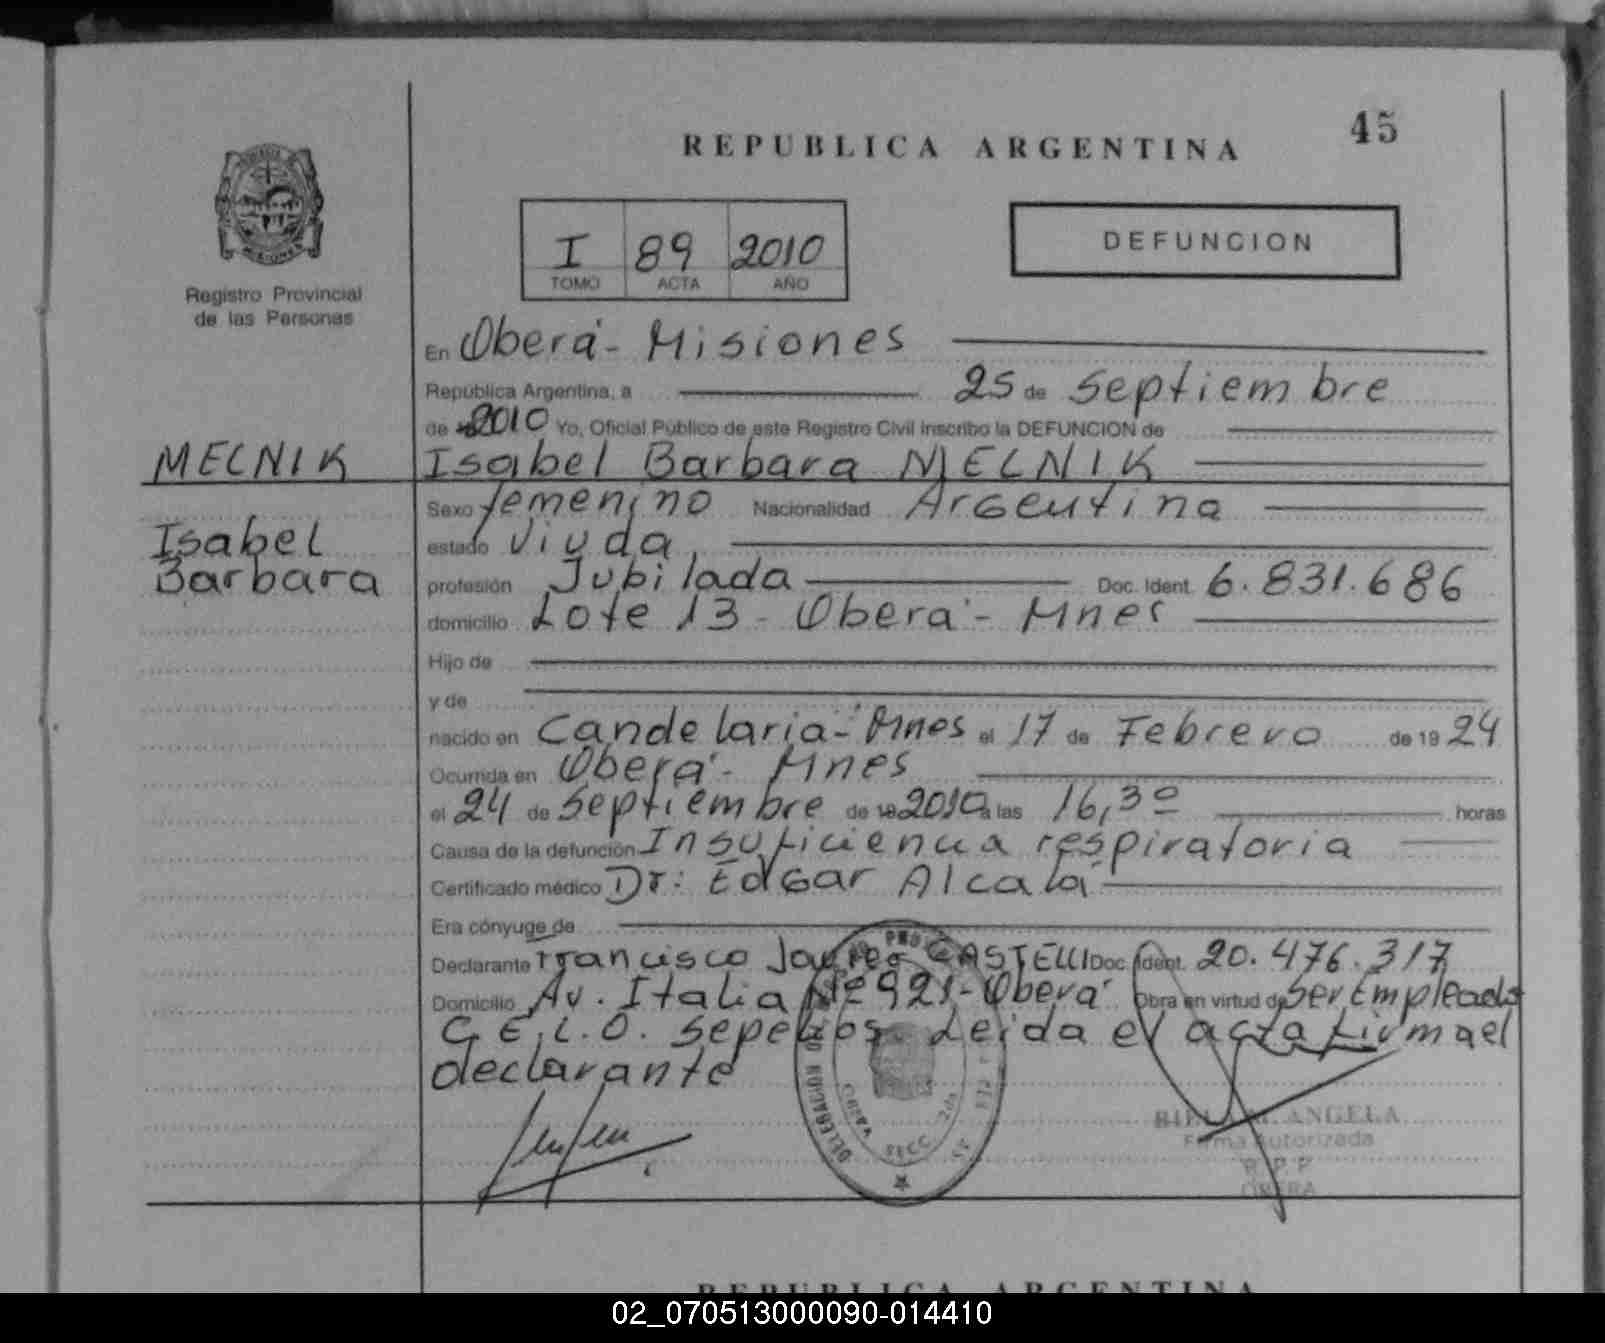 45
REPUBLICA ARGENTINA
I 89 2010
TOMO ACTA AÑO
DEFUNCION
Registro Provincial
de las Personas
En Oberá - Misiones
República Argentina, a 25 de Septiembre
de 2010 Yo, Oficial Público de este Registro Civil inscribo la DEFUNCION de
MELNIK
Isabel Barbara MELNIK
Isabel
Barbara
Sexo femenino Nacionalidad Argentina
estado Viuda
profesión Jubilada Doc. Ident. 6.831.686
domicilio Lote 13 - Oberá - Mnes
Hijo de
y de
nacido en Candelaria - Mnes el 17 de Febrero de 1924
Ocurrida en Oberá - Mnes
el 24 de Septiembre de 2010 a las 16,30 horas
Causa de la defunción Insuficiencia respiratoria
Certificado médico Dr: Edgar Alcalá
Era cónyuge de
Declarante Francisco Javier CASTELLI Doc. Ident. 20.476.317
Domicilio Av. Italia Nº 921 - Oberá Obra en virtud de Ser Empleado
C.E.L.O. Sepelios. Leida el acta firma el
declarante
DELEGACION SECC. 2da
ANGELA
Firma Autorizada
R.P.P
OBERA
REPUBLICA ARGENTINA
02_070513000090-014410